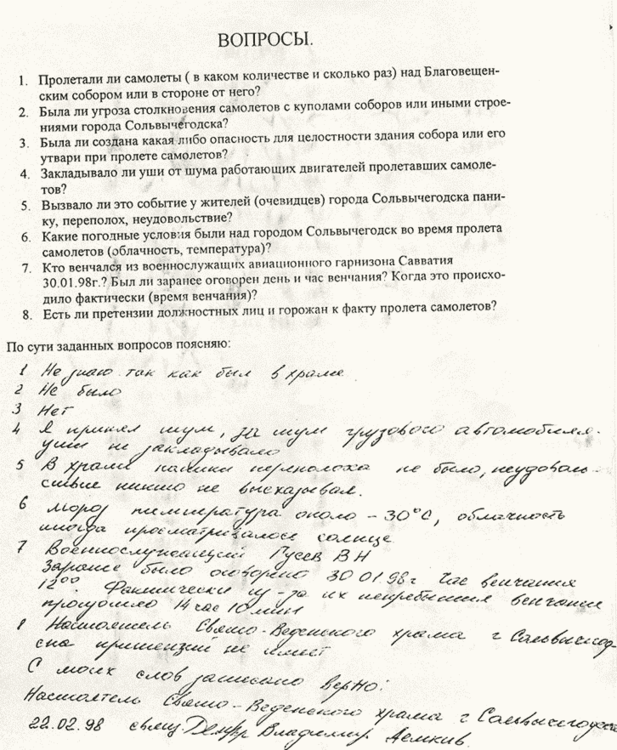 ВОПРОСЫ.
1. Пролетали ли самолеты ( в каком количестве и сколько раз) над Благовещен-
ским собором или в стороне от него?
2. Была ли угроза столкновения самолетов с куполами соборов или иными строе-
ниями города Сольвычегодска?
3. Была ли создана какая либо опасность для целостности здания собора или его
утвари при пролете самолетов?
4. Закладывало ли уши от шума работающих двигателей пролетавших самоле-
тов?
5. Вызвало ли это событие у жителей (очевидцев) города Сольвычегодска пани-
ку, переполох, неудовольствие?
6. Какие погодные условия были над городом Сольвычегодск во время пролета
самолетов (облачность, температура)?
7. Кто венчался из военнослужащих авиационного гарнизона Савватия
30.01.98г.? Был ли заранее оговорен день и час венчания? Когда это происхо-
дило фактически (время венчания)?
8. Есть ли претензии должностных лиц и горожан к факту пролета самолетов?
По сути заданных вопросов поясняю:
1 Не знаю так как был в храме
2 Не было
3 Нет
4 Я принял шум, за шум грузового автомобиля.
уши не закладывало
5 В храме паники переполоха не было, неудоволь-
ствие никто не высказывал.
6 Мороз температура около -30°С, облачность
иногда просматривалось солнце
7 Военнослужащий Гусев В Н
Заранее было оговорено 30 01 98 г Час венчания
12⁰⁰. Фактически из-за их неприбытия венчание
произошло 14 час 10 мин
8 Настоятель Свято-Веденского храма г Сольвычегод-
ска притензии не имеет
С моих слов записано верно:
Настоятель Свято-Веденского храма г Сольвычегодска
22.02.98 свящ. Владимир